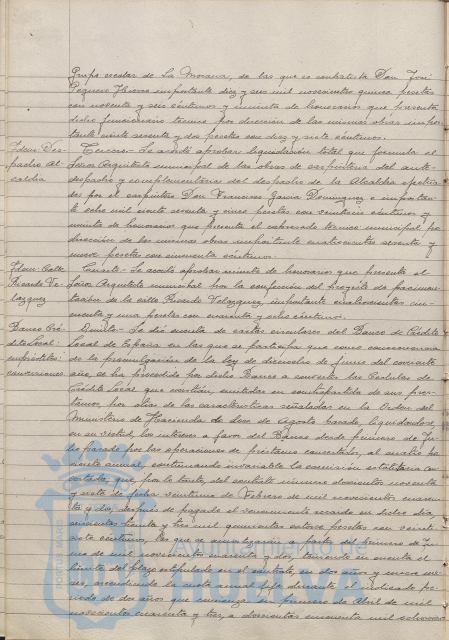 Grupo escolar de La Morana, de las que es contratista Don José
Peguero Hierro importante diez y seis mil novecientas quince pesetas
con noventa y seis céntimos y minuta de honorarios que presenta
dicho funcionario técnico por dirección de las mismas obras impor-
tante ciento sesenta y dos pesetas con diez y siete céntimos.
Idem. Des-
pacho Al-
caldía
Tercero.- Se acordó aprobar liquidación total que formula el
Señor Arquitecto municipal de las obras de carpintería del ante-
despacho y complementarias del despacho de la Alcaldía efectua-
das por el carpintero Don Francisco García Domínguez e importan-
te ocho mil ciento sesenta y cinco pesetas con veintiseis céntimos y
minuta de honorarios que presenta el expresado técnico municipal por
dirección de las mismas obras importante cuatrocientas sesenta y
nueve pesetas con cincuenta céntimos.
Idem. Calle
Ricardo Ve-
lázquez
Cuarto.- Se acordó aprobar minuta de honorarios que presenta el
Señor Arquitecto municipal por la confección del proyecto de pavimen-
tación de la calle Ricardo Velázquez, importante cuatrocientas cin-
cuenta y una pesetas con cuarenta y ocho céntimos.
Banco Cré-
dito Local:
empréstitos:
conversiones
Quinto.- Se dió cuenta de cartas circulares del Banco de Crédito
Local de España en las que se participa que como consecuencia
de la promulgación de la Ley de dieciocho de junio del corriente
año, se ha procedido por dicho Banco a convertir las Cédulas de
Crédito Local que emitían, emitidas en contrapartida de sus prés-
tamos por otras de las características señaladas en la Orden del
Ministerio de Hacienda de doce de agosto pasado, liquidándose,
en su virtud, los intereses a favor del Banco desde primero de Ju-
lio pasado por las operaciones de préstamo concertadas, al cuatro por
ciento anual, continuando invariable la comisión estatutaria con-
certada, que, por lo tanto, del crédito número doscientos noventa
y siete de fecha veintiuno de Febrero de mil novecientos cuaren-
ta y dos, después de pagado el vencimiento quedó en dicho día
seiscientas treinta y tres mil quinientas catorce pesetas con veinti-
siete céntimos, las que se amortizarán a partir del primero de Ju-
nio de mil novecientos cuarenta y dos, teniendo en cuenta el
límite del plazo estipulado en el contrato, en dos años y nueve me-
ses, ascendiendo la cuota anual fija durante el indicado pe-
riodo de dos años que comienza en primero de Abril de mil
novecientos cuarenta y tres, a doscientas cincuenta mil setecientas
Ayuntamiento de
HUELVA